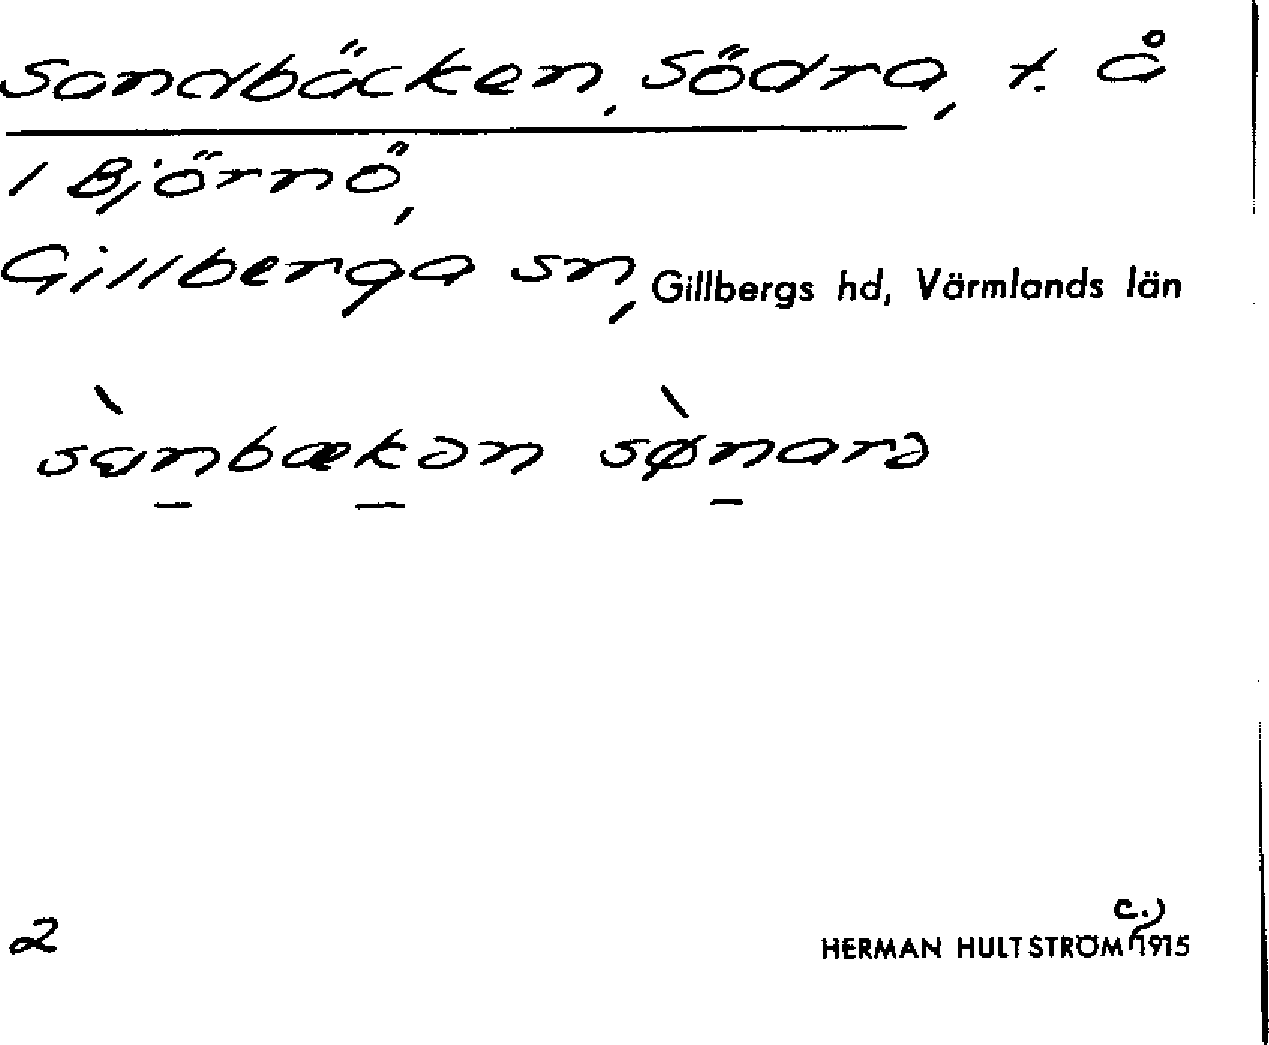 Sandbäcken, Södra, t. å
i Björnö,
Gillberga sn, Gillbergs hd, Värmlands län
sànbækən sø̀narə
c.)
2 HERMAN HULTSTRÖM 1915